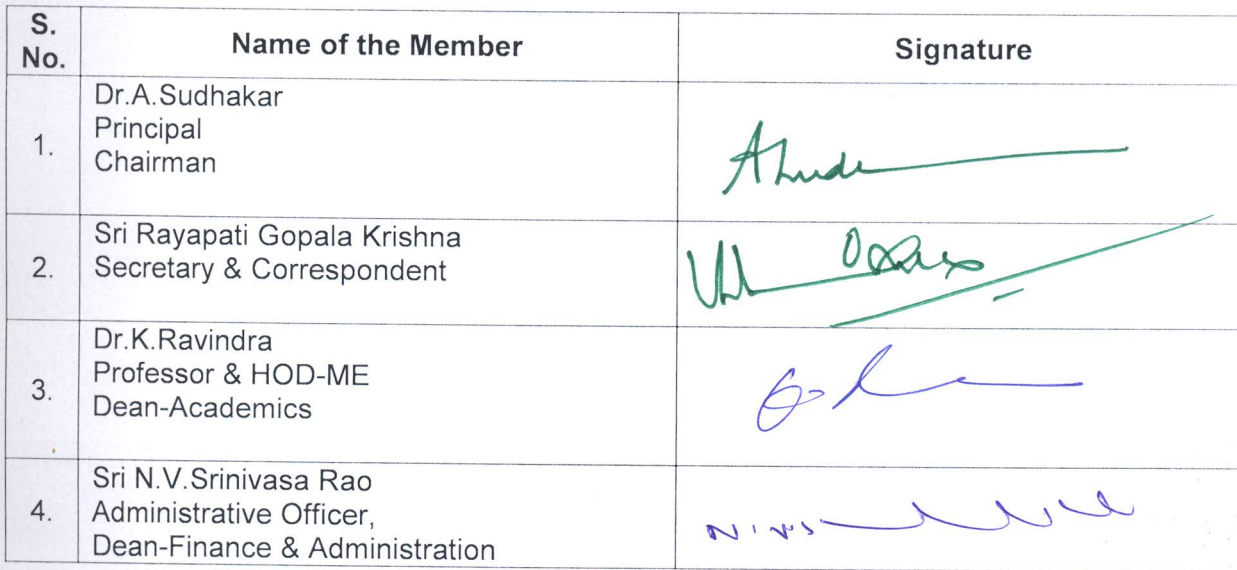 S. No. Name of the Member Signature
1. Dr.A.Sudhakar
Principal
Chairman
2. Sri Rayapati Gopala Krishna
Secretary & Correspondent
3. Dr.K.Ravindra
Professor & HOD-ME
Dean-Academics
4. Sri N.V.Srinivasa Rao
Administrative Officer,
Dean-Finance & Administration